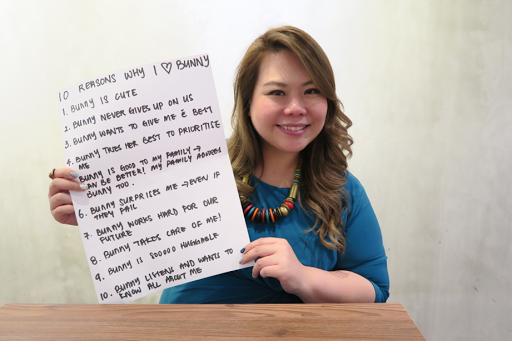 10 REASONS WHY I ♡ BUNNY
1. BUNNY IS CUTE
2. BUNNY NEVER GIVES UP ON US
3. BUNNY WANTS TO GIVE ME È BEST
4. BUNNY TRIES HER BEST TO PRIORITISE
ME
BUNNY IS GOOD TO MY FAMILY →
CAN BE BETTER! MY FAMILY ADORES
BUNNY TOO.
6. BUNNY SURPRISES ME → EVEN IF
THEY FAIL
7. BUNNY WORKS HARD FOR OUR
FUTURE
8. BUNNY TAKES CARE OF ME!
9. BUNNY IS SOOOOO HUGGABLE
10. BUNNY LISTENS AND WANTS TO
KNOW ALL ABOUT ME